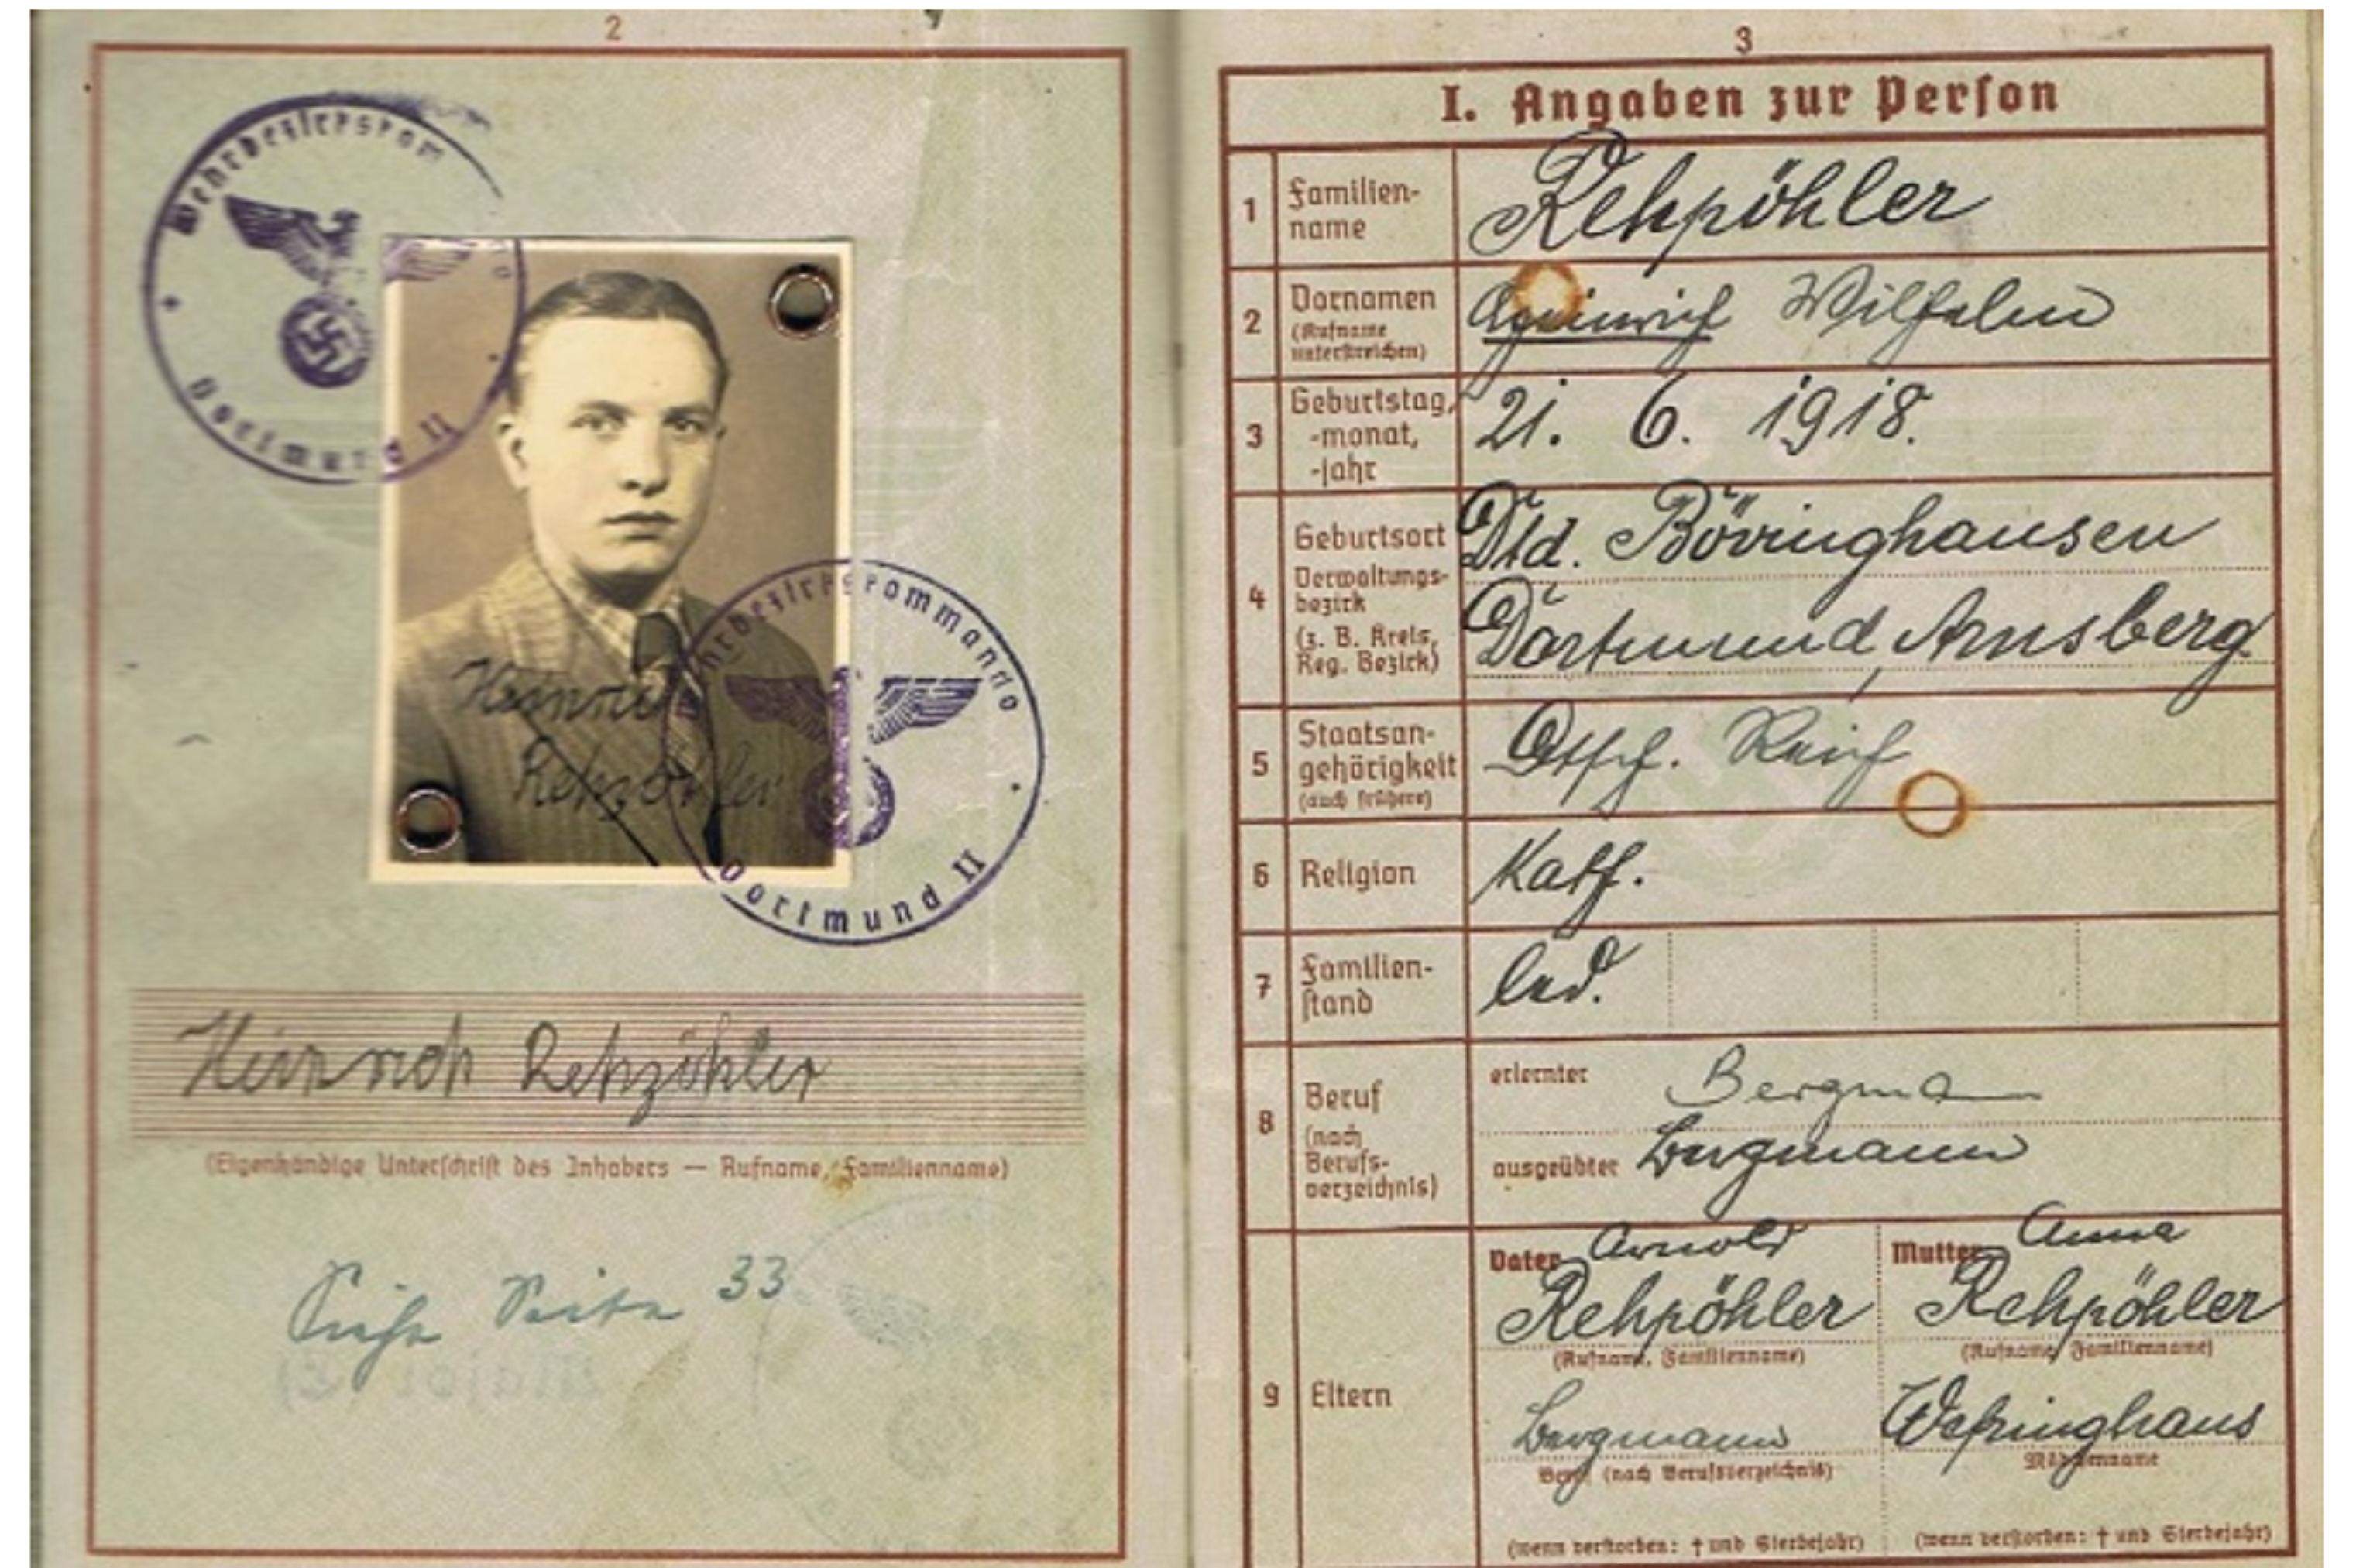 2
Wehrbezirkskom
Dortmund II
Heinrich
Rehpöhler
Wehrbezirkskommando
Dortmund II
Heinrich Rehpöhler
(Eigenhändige Unterschrift des Inhabers — Rufname, Familienname)
Siehe Seite 33
3
I. Angaben zur Person
1 Familien-
name
Rehpöhler
2 Vornamen
(Rufname
unterstreichen)
Heinrich Wilhelm
3 Geburtstag,
-monat,
-jahr
21. 6. 1918.
4 Geburtsort
Verwaltungs-
bezirk
(z. B. Kreis,
Reg. Bezirk)
Dtd. Bövinghausen
Dortmund, Arnsberg
5 Staatsan-
gehörigkeit
(auch frühere)
Dtsch. Reich
6 Religion
Kath.
7 Familien-
stand
led.
8 Beruf
(nach
Berufs-
verzeichnis)
erlernter Bergmann
ausgeübter Bergmann
9 Eltern
Vater Arnold
Rehpöhler
(Rufname, Familienname)
Bergmann
Beruf (nach Berufsverzeichnis)
(wenn verstorben: † und Sterbejahr)
Mutter Anna
Rehpöhler
(Rufname, Familienname)
Mädchenname
(wenn verstorben: † und Sterbejahr)